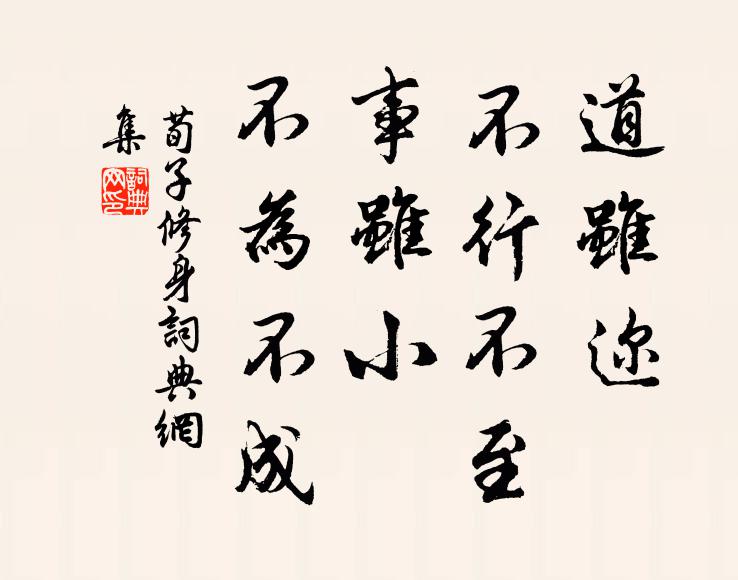 道雖迩
不行不至
事雖小
不為不成
荀子修身詞典網
集
詞典
网印